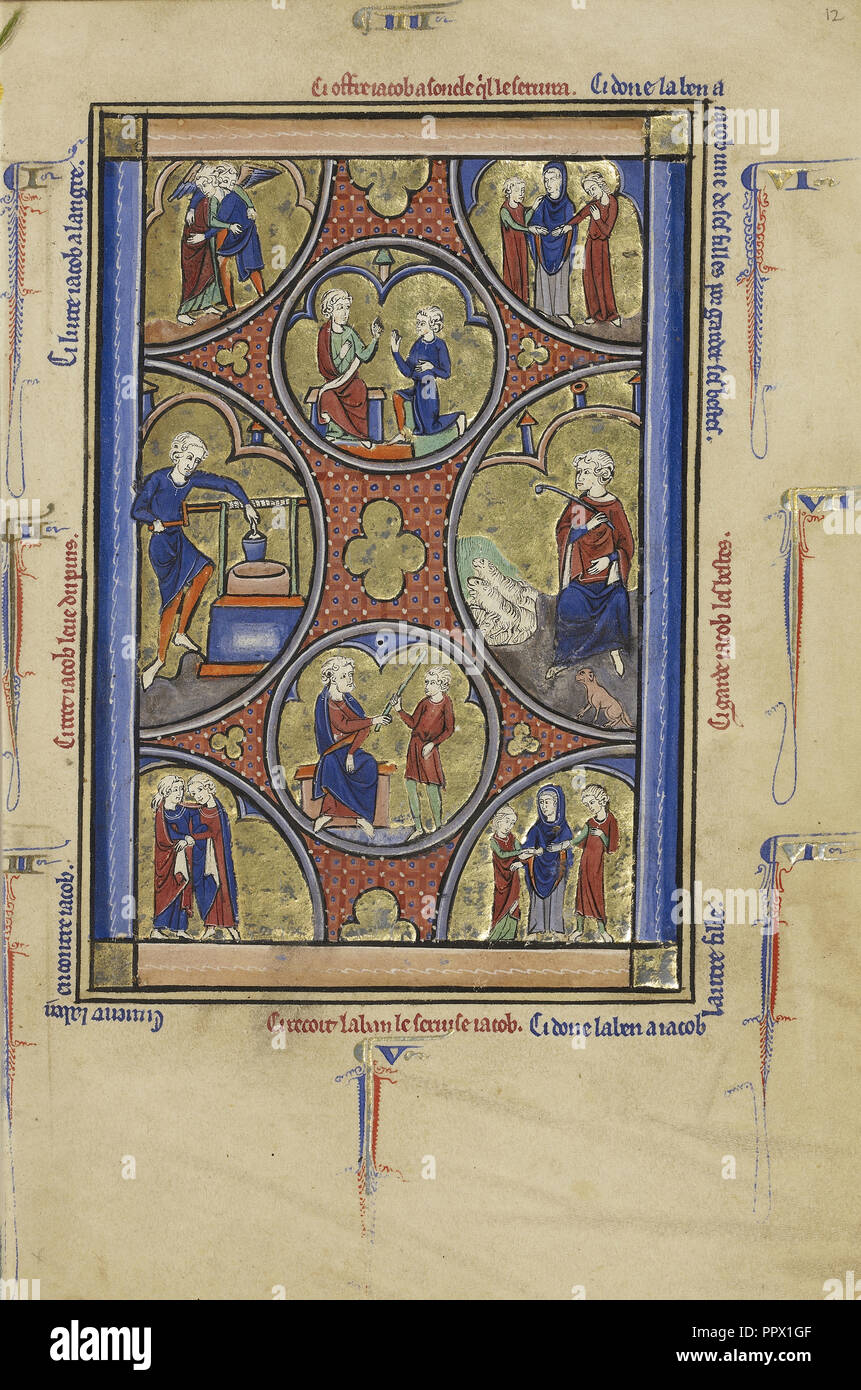 III
12
Ci offre iacob a son cle q'l le seruira. Ci done laben a
iacob une de ses filles por garder ses bestes.
I
Ci luite iacob a langre.
VI
II
Ci tret iacob leue du puis.
VII
Ci garde iacob les bestes.
III
Ci vient laben
encontre iacob.
VIII
Ci recoit laban le seruise iacob. Ci done laben a iacob
V
alamy
alamy
Image ID: PPX1GF
www.alamy.com